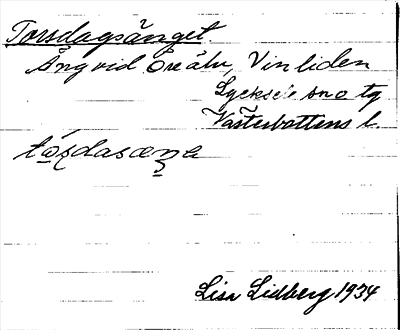 Torsdagsänget
Äng vid Öreälv, Vinliden
Lycksele sno tg
Västerbottens l.
Lisa Lidberg 1934